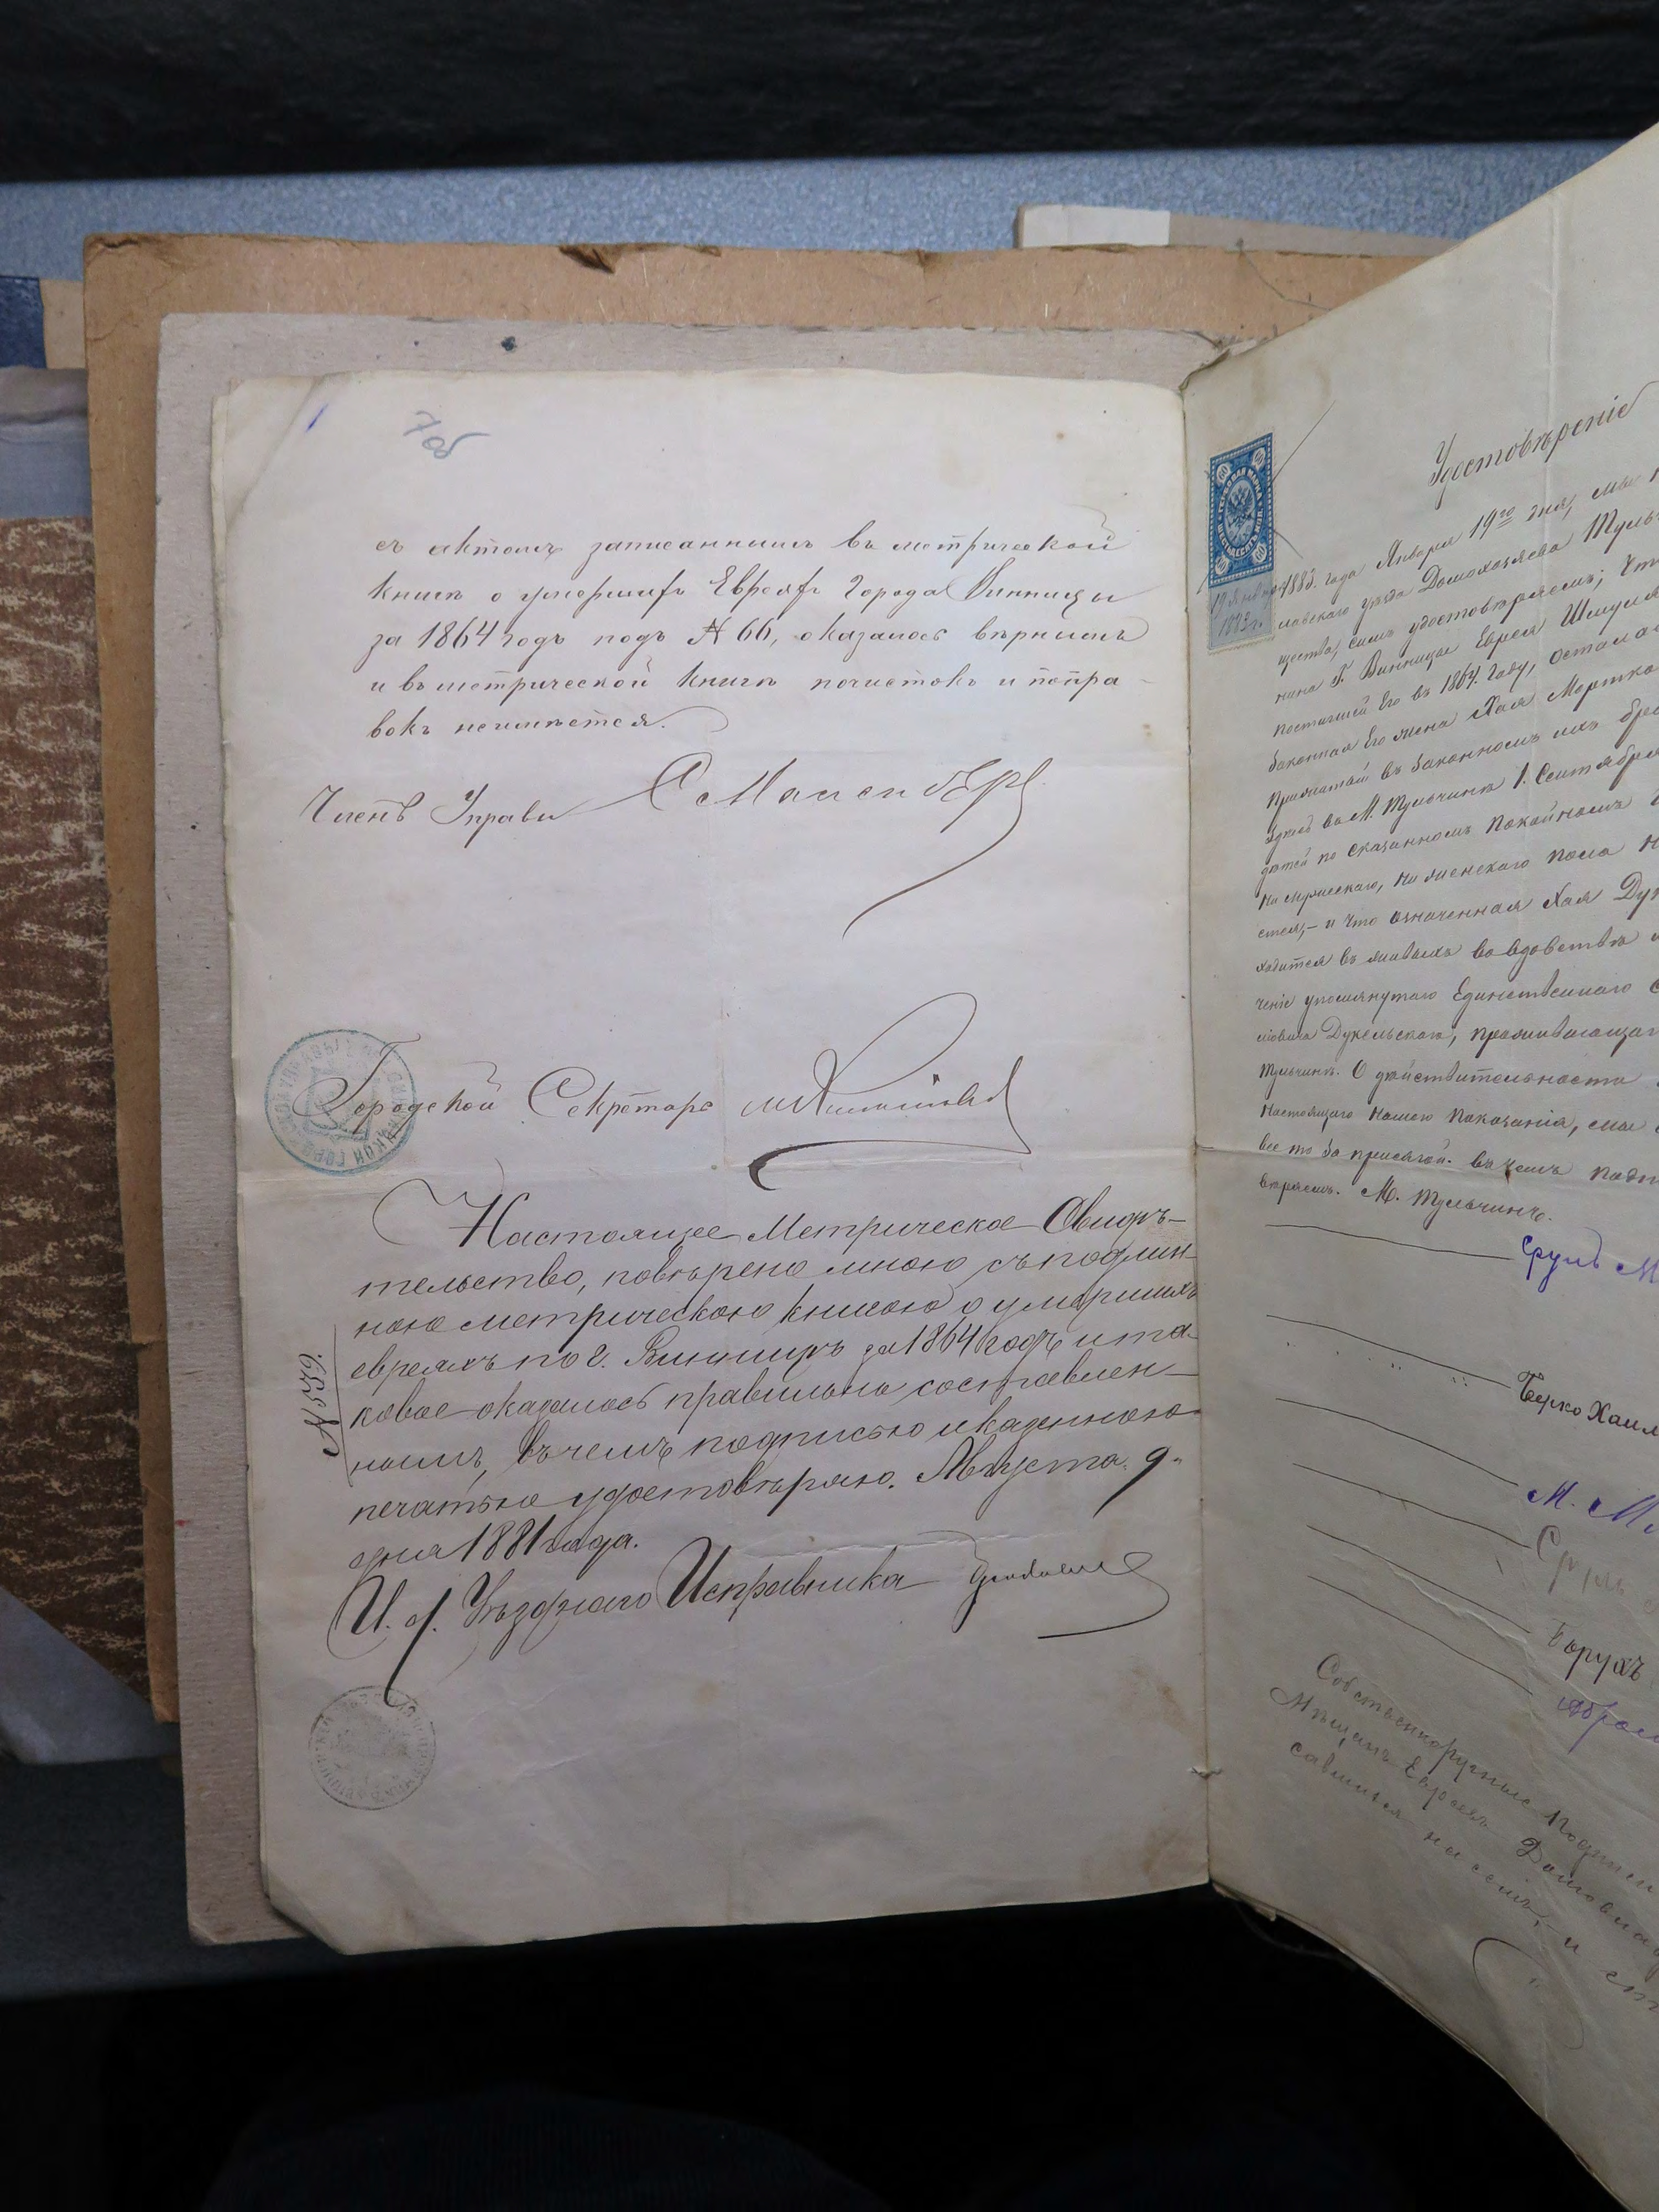 7об
съ актомъ записаннымъ въ метрической
книгѣ о умершихъ Евреяхъ Города Винницы
за 1864 годъ подъ № 66, оказалось вѣрнымъ
и въ метрической книгѣ почистокъ и попра-
вокъ неимѣется.
Членъ Управы
Городской Секретарь
Настоящее Метрическое Свидѣ-
тельство, повѣрено мною съ подлин-
ною метрическою книгою о умершихъ
евреяхъ по г. Винницѣ за 1864 годъ и та-
ковое оказалось правильно составлен-
нымъ, въ чемъ подписью и казенною
печатью удостовѣряю. Августа 9
дня 1881 года.
№ 539.
И. д. Уѣзднаго Исправника
Удостовѣреніе
60 60
ГЕРБОВАЯ МАРКА
60 60
19 Января
1883 г.
1883. года Января 19го дня, мы
лавскаго уѣзда Домохозяева Тульч
щества, симъ удостовѣряемъ; что
нина Г. Винницы Еврея Шмуля
постигшей Его въ 1864. году, осталас
Законная Его жена Хая Мортко
прижитый въ Законномъ ихъ бра
здѣсь въ М. Тульчинѣ 1. Сентября
дѣтей по сказанномъ покойномъ
ни мужескаго, ни женскаго пола н
ется,- и что означенная Хая Дук
ходится въ живыхъ во вдовствѣ
ченіе упомянутаго Единственнаго С
мовича Дукельскаго, проживающаг
Тульчинѣ. О дѣйствительности
Настоящаго Нашего показанія, мы
все то за присягой. въ чемъ подп
вѣряемъ. М. Тульчинъ.
Срулъ М
Берко Хаим
М. М
Сруль
Борухъ
Абрам
Собственноручные Подписи
Мѣщанъ Евреевъ Домовла
савшихся на семъ,- и